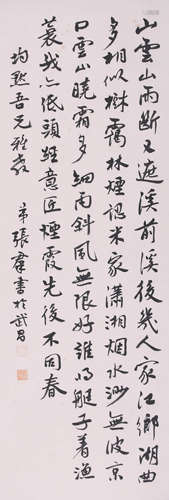 山雲山雨断又遮溪前溪後幾人家江鄉湖曲
多相似樹靄林煙認米家瀟湘烟水渺無波京
口雲山曉霜多細雨斜風無限好誰為艇子著漁
蓑或亦低頭經意匠煙霞先後不同春
均默吾兄雅教
弟張羣書於武昌